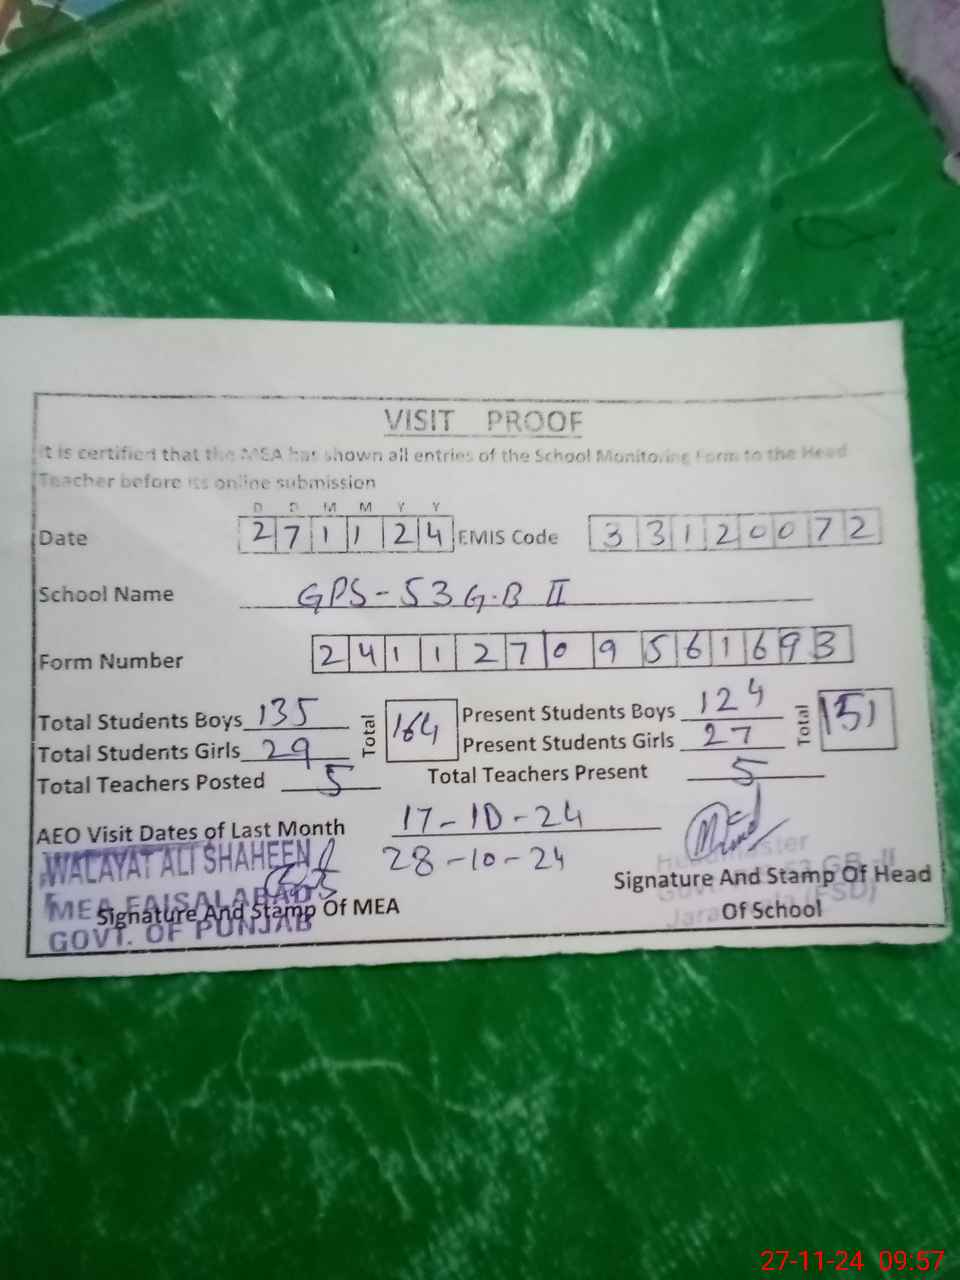 VISIT PROOF
It is certified that the MEA has shown all entries of the School Monitoring Form to the Head
Teacher before its online submission
D D M M Y Y
Date 2 7 1 1 2 4 EMIS Code 3 3 1 2 0 0 7 2
School Name GPS-53 G.B II
Form Number 2 4 1 1 2 7 0 9 5 6 1 6 9 3
Total Students Boys 135 Total 164 Present Students Boys 124 Total 151
Total Students Girls 29 Present Students Girls 27
Total Teachers Posted 5 Total Teachers Present 5
AEO Visit Dates of Last Month 17-10-24
28-10-24
WALAYAT ALI SHAHEEN
MEA FAISALABAD
GOVT. OF PUNJAB
Signature And Stamp Of MEA
Headmaster
53 GB-II
(FSD)
Signature And Stamp Of Head
Of School
27-11-24 09:57